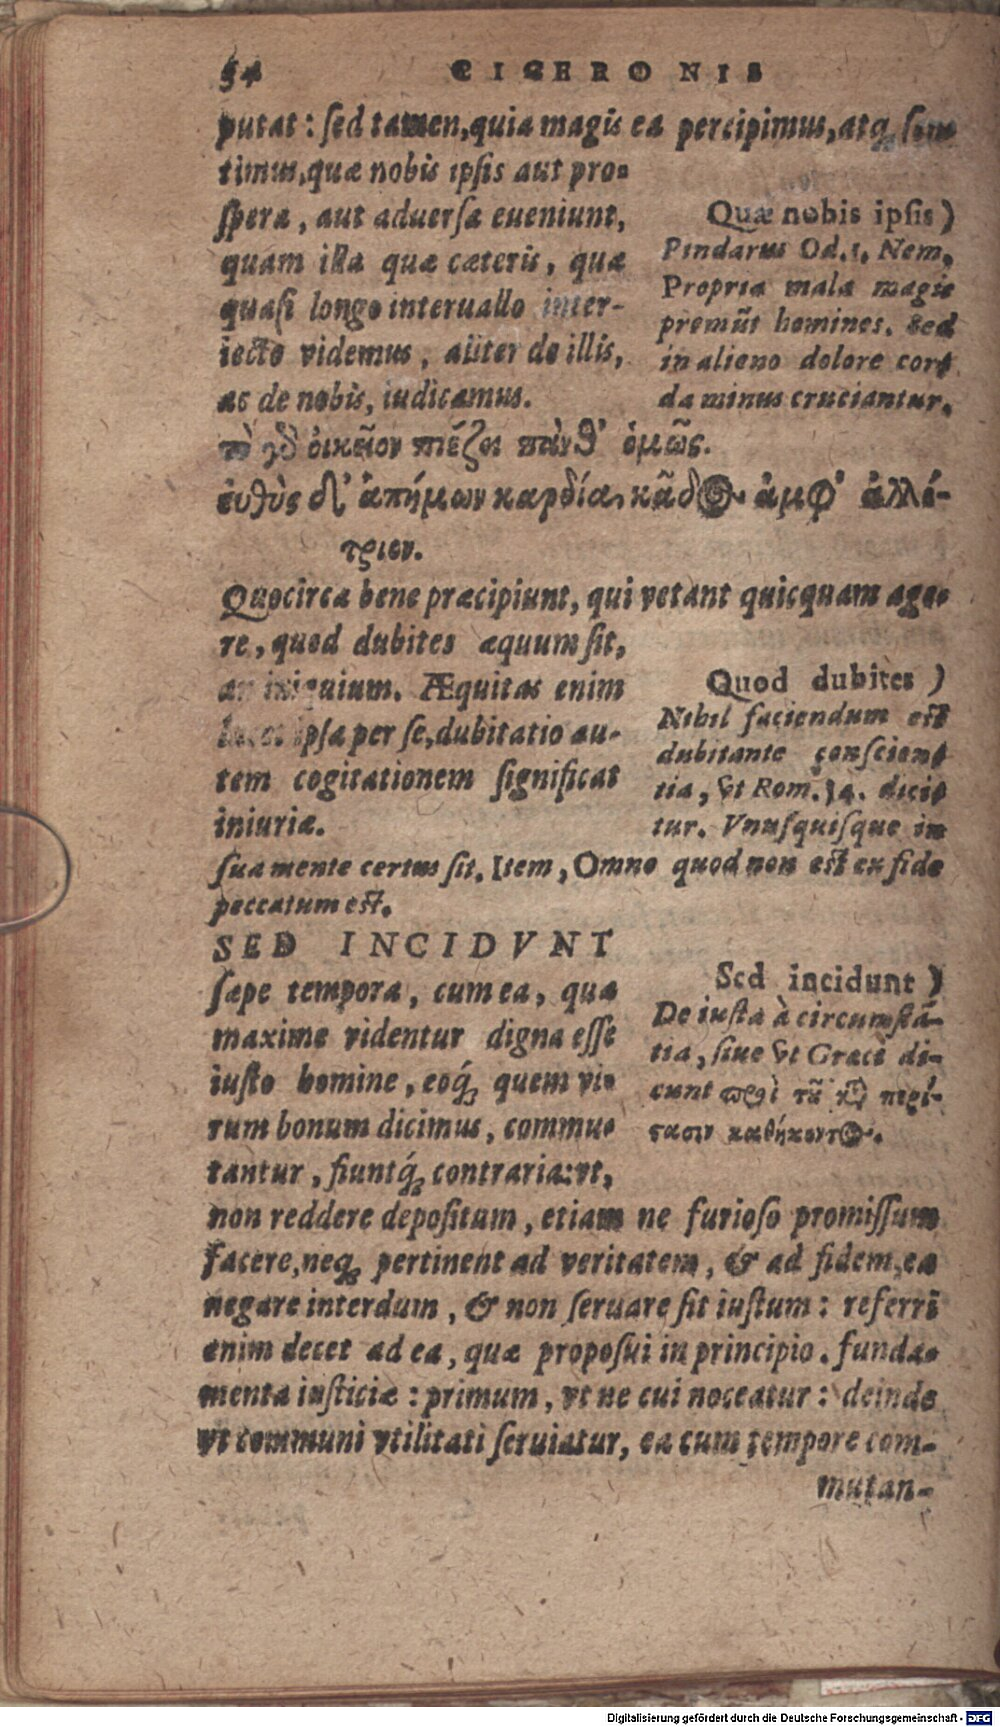 54 CICERONIS
putat : sed tamen, quia magis ea percipimus, atq; sen-
timus, quæ nobis ipsis aut pro-
spera, aut aduersa eueniunt,
quam illa quæ cæteris, quæ
quasi longo interuallo inter-
iecto videmus, aliter de illis,
ac de nobis, iudicamus.
Quæ nobis ipsis )
Pindarus Od. 1. Nem.
Propria mala magis
premũt homines. Sed
in alieno dolore cor-
da minus cruciantur.
τὸ γὸ οἰκεῖον πιέζει πάνθ' ὁμῶς.
ἐυθὺς δ' ἀπήμων καρδία, κᾶδος ἀμφ' ἀλλό-
τριον.
Quocirca bene præcipiunt, qui vetant quicquam age-
re, quod dubites æquum sit,
an iniquium. Æquitas enim
lucet ipsa per se, dubitatio au-
tem cogitationem significat
iniuriæ.
Quod dubites )
Nihil faciendum est
dubitante conscien-
tia, vt Rom. 14. dici-
tur. Vnusquisque in
sua mente certus sit. Item, Omne quod non est ex fide
peccatum est.
SED INCIDVNT
sæpe tempora, cum ea, quæ
maxime videntur digna esse
iusto homine, eoq́; quem vi-
rum bonum dicimus, commu-
tantur, fiuntq́; contraria: vt,
Sed incidunt )
De iusta à circumstã-
tia, siue vt Græci di-
cunt περὶ τῦ κτ̃ περί-
στασιν καθήκοντος.
non reddere depositum, etiam ne furioso promissum
facere, neq; pertinent ad veritatem, & ad fidem, ea
negare interdum, & non seruare sit iustum : referri
enim decet ad ea, quæ proposui in principio. funda-
menta iusticiæ : primum, vt ne cui noceatur : deinde
vt communi vtilitati seruiatur, ea cum tempore com-
mutan-
Digitalisierung gefördert durch die Deutsche Forschungsgemeinschaft - DFG